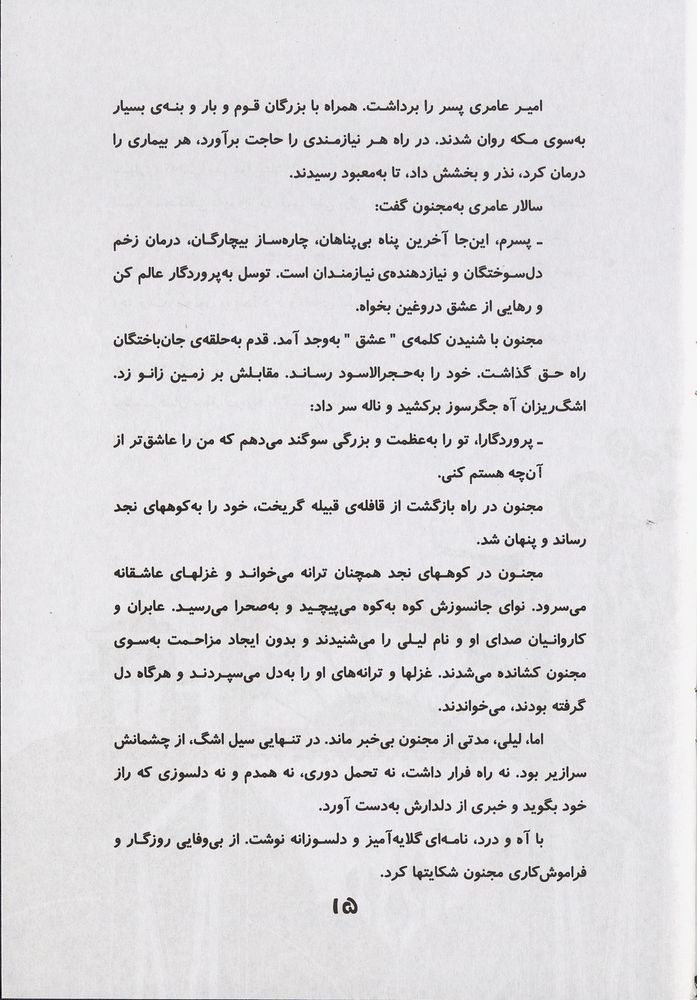 امیر عامری پسر را برداشت. همراه با بزرگان قوم و بار و بنه‌ی بسیار
به‌سوی مکه روان شدند. در راه هر نیازمندی را حاجت برآورد، هر بیماری را
درمان کرد، نذر و بخشش داد، تا به‌معبود رسیدند.
سالار عامری به‌مجنون گفت:
ـ پسرم، این‌جا آخرین پناه بی‌پناهان، چاره‌ساز بیچارگان، درمان زخم
دل‌سوختگان و نیازدهنده‌ی نیازمندان است. توسل به‌پروردگار عالم کن
و رهایی از عشق دروغین بخواه.
مجنون با شنیدن کلمه‌ی " عشق " به‌وجد آمد. قدم به‌حلقه‌ی جان‌باختگان
راه حق گذاشت. خود را به‌حجرالاسود رساند. مقابلش بر زمین زانو زد.
اشگ‌ریزان آه جگرسوز برکشید و ناله سر داد:
ـ پروردگارا، تو را به‌عظمت و بزرگی سوگند می‌دهم که من را عاشق‌تر از
آن‌چه هستم کنی.
مجنون در راه بازگشت از قافله‌ی قبیله گریخت، خود را به‌کوههای نجد
رساند و پنهان شد.
مجنون در کوههای نجد همچنان ترانه می‌خواند و غزلهای عاشقانه
می‌سرود. نوای جانسوزش کوه به‌کوه می‌پیچید و به‌صحرا می‌رسید. عابران و
کاروانیان صدای او و نام لیلی را می‌شنیدند و بدون ایجاد مزاحمت به‌سوی
مجنون کشانده می‌شدند. غزلها و ترانه‌های او را به‌دل می‌سپردند و هرگاه دل
گرفته بودند، می‌خواندند.
اما، لیلی، مدتی از مجنون بی‌خبر ماند. در تنهایی سیل اشگ، از چشمانش
سرازیر بود. نه راه فرار داشت، نه تحمل دوری، نه همدم و نه دلسوزی که راز
خود بگوید و خبری از دلدارش به‌دست آورد.
با آه و درد، نامه‌ای گلایه‌آمیز و دلسوزانه نوشت. از بی‌وفایی روزگار و
فراموش‌کاری مجنون شکایتها کرد.
۱۵